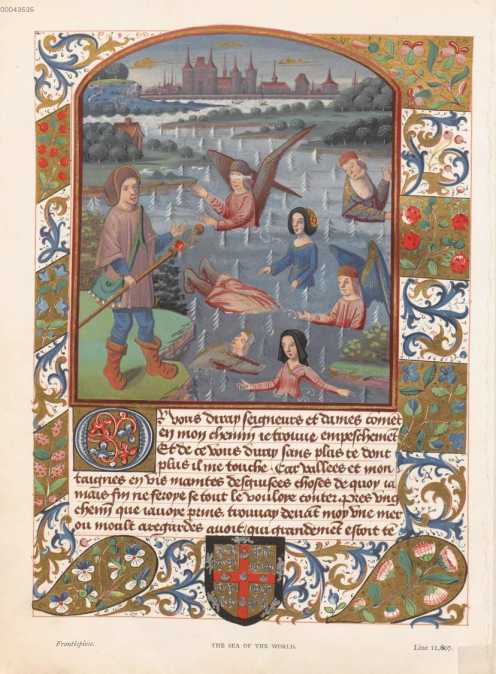 00043535
Or vous diray seigneurs et dames comet
en mon chemin ie trouue empeschemet
Et de ce vous diray sans plus te dont
plus il me touche. Car vallees et mon
taignes en vis maintes desguisees choses de quoy ia
mais fin ne feroye se tout le vouloye conter. Pres vng
chemin que iauoye prins, trouuay deuat moy vne mer
ou moult aregardes auoit, qui grandemet estoit te
Frontispiece.
THE SEA OF THE WORLD.
Line 11,607.